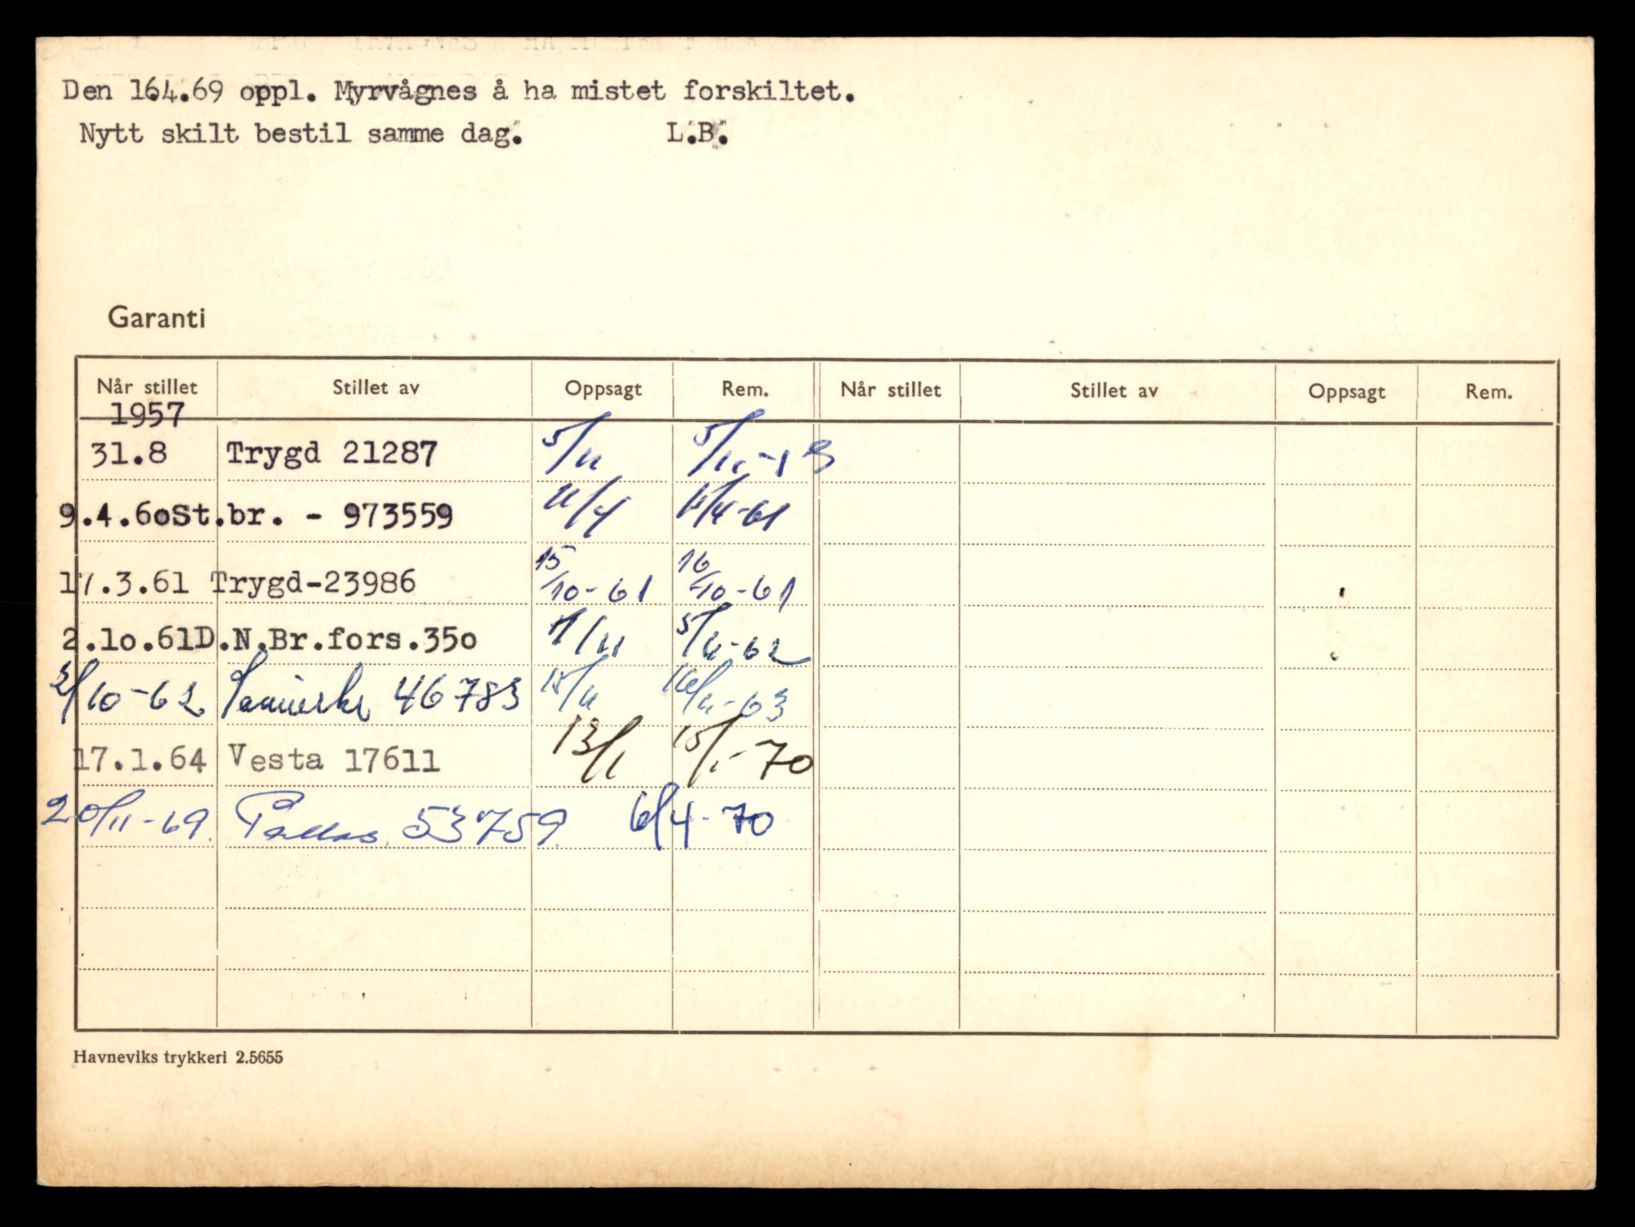 Den 16.4.69 oppl. Myrvågnes å ha mistet forskiltet.
Nytt skilt bestil samme dag. L.B.
Garanti
Når stillet Stillet av Oppsagt Rem. Når stillet Stillet av Oppsagt Rem.
1957
31.8 Trygd 21287 5/11 5/11-
9.4.60 St.br. - 973559 /4 /4-61
17.3.61 Trygd-23986 15/10-61 16/10-61
2.10.61 D.N.Br.fors.350 /11 5/11-62
/10-62 46783 15/11 16/11-63
17.1.64 Vesta 17611 13/1 15/1-70
20/11-69. Pallas. 53759. 6/4-70
Havneviks trykkeri 2.5655